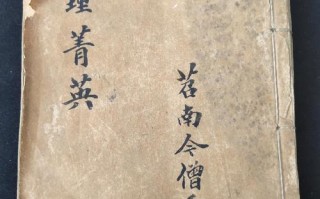 理菁英
茗南今僧